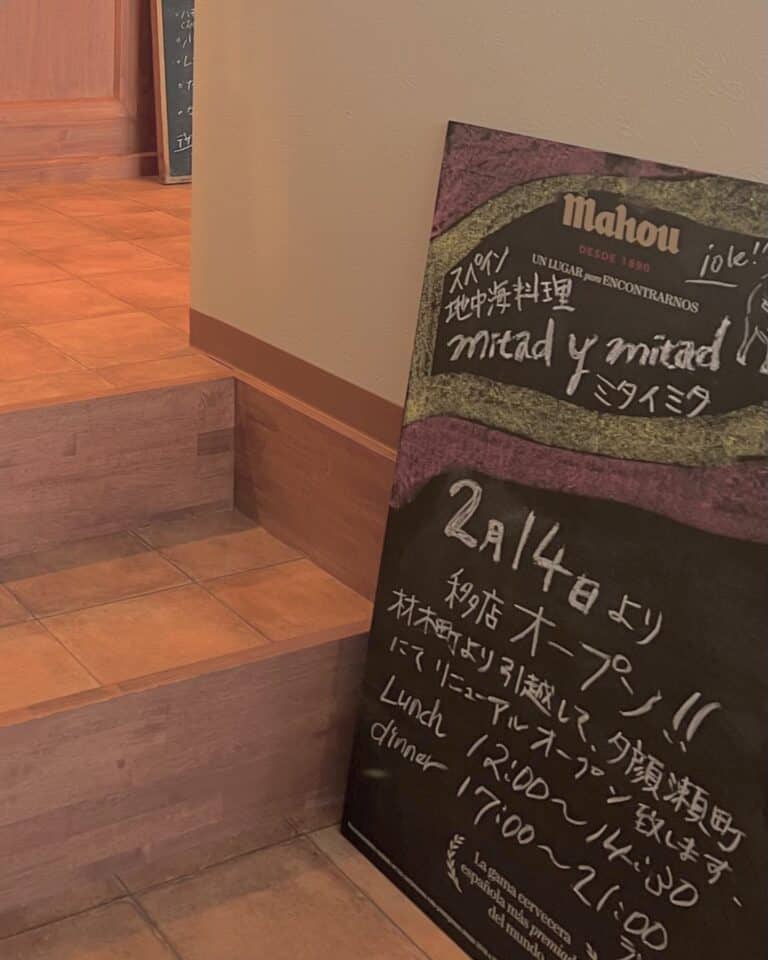 Mahou
DESDE 1890
¡ole!!
UN LUGAR para ENCONTRARNOS
スペイン
地中海料理
mitad y mitad
ミタイミタ
2月14日より
移店オープン!!
材木町より引越して、夕顔瀬町
にてリニューアルオープン致します、
Lunch 12:00~14:30
dinner 17:00~21:00
La gama cervecera
española más premiada
del mundo